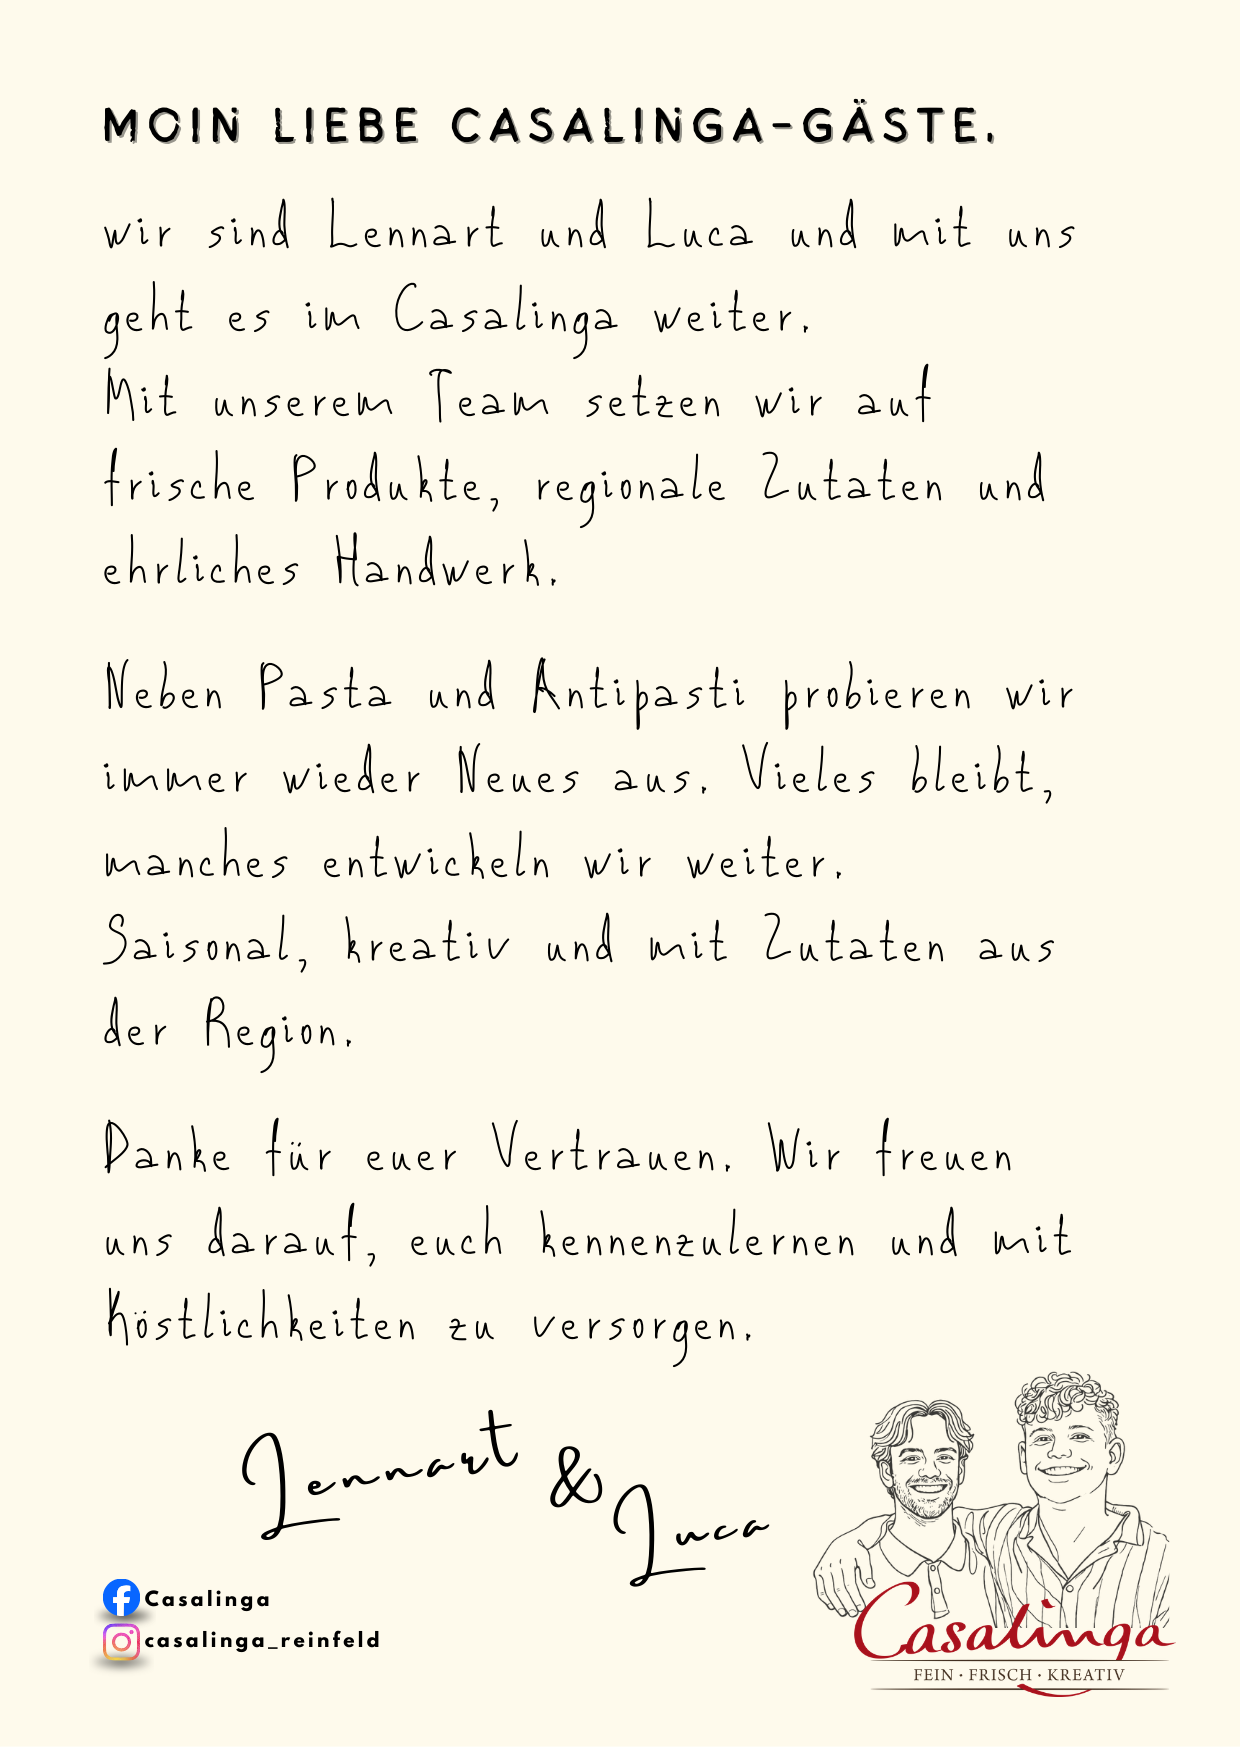 MOIN LIEBE CASALINGA-GÄSTE.
wir sind Lennart und Luca und mit uns
geht es im Casalinga weiter.
Mit unserem Team setzen wir auf
frische Produkte, regionale Zutaten und
ehrliches Handwerk.
Neben Pasta und Antipasti probieren wir
immer wieder Neues aus. Vieles bleibt,
manches entwickeln wir weiter.
Saisonal, kreativ und mit Zutaten aus
der Region.
Danke für euer Vertrauen. Wir freuen
uns darauf, euch kennenzulernen und mit
Köstlichkeiten zu versorgen.
Lennart & Luca
Casalinga
casalinga_reinfeld
Casalinga
FEIN · FRISCH · KREATIV